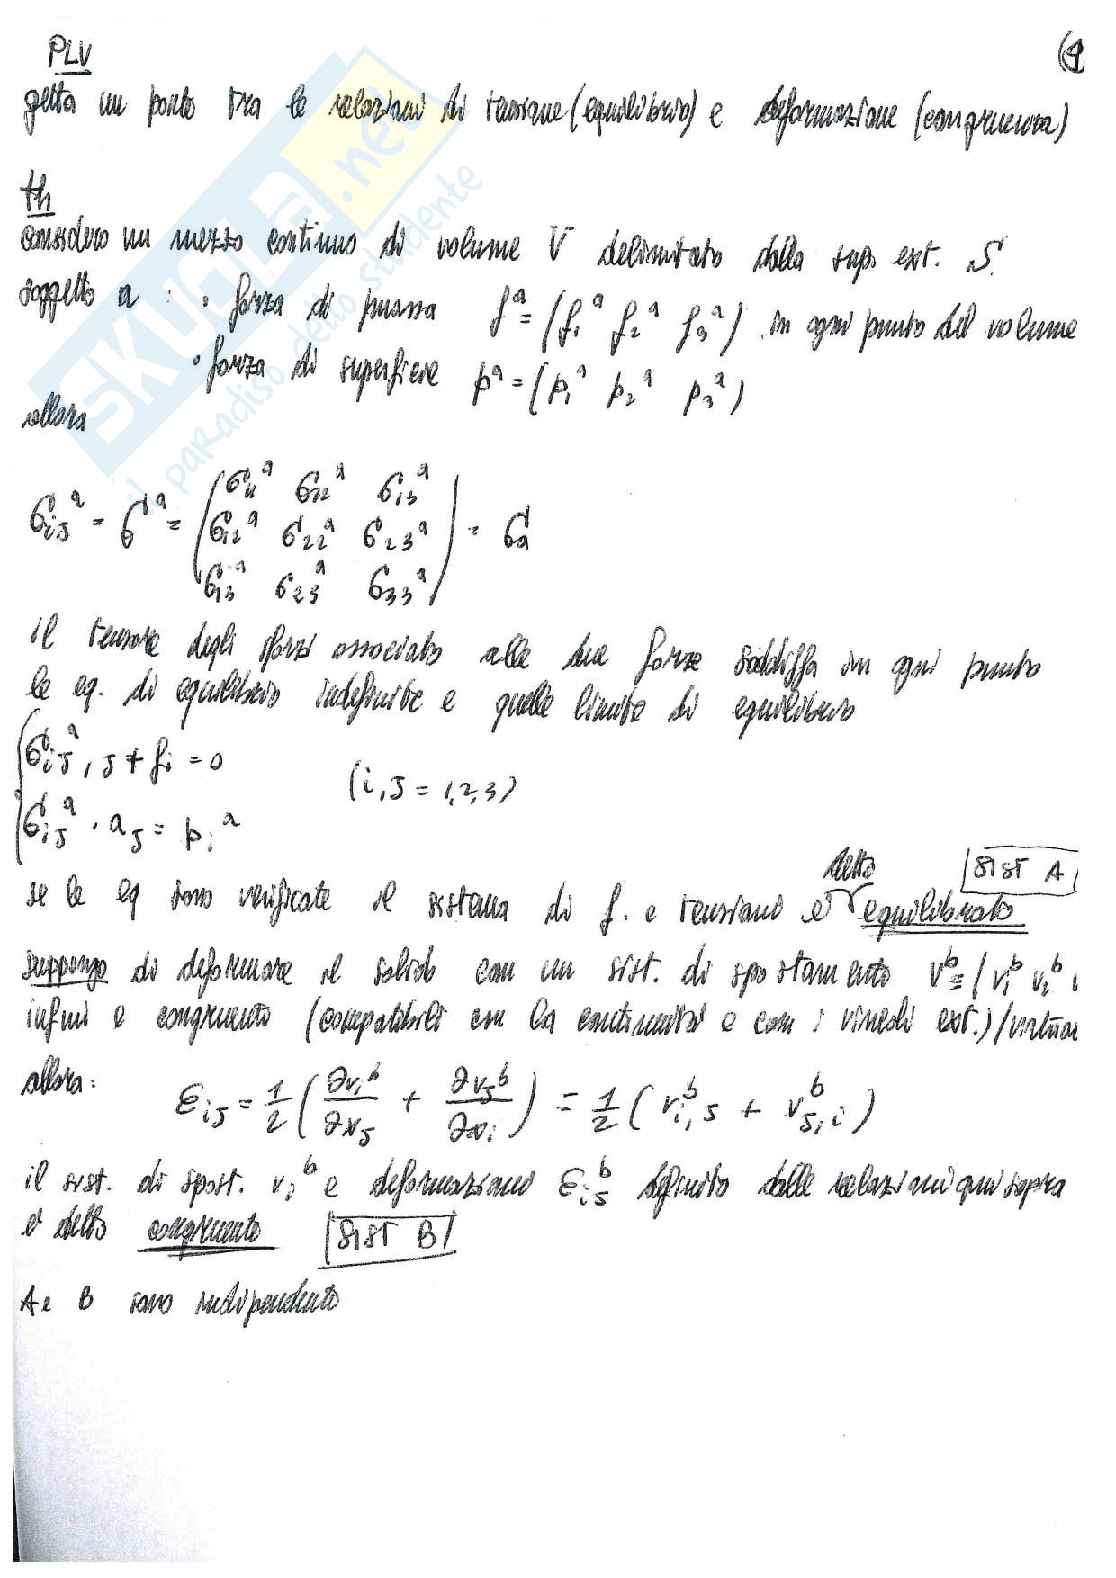 PLV
(1
getta un ponte tra le relazioni di tensione (equilibrio) e deformazione (congruenza)
th
considero un mezzo continuo di volume V delimitato dalla sup. ext. S.
soggetto a : • forza di massa f^a = (f_1^a f_2^a f_3^a) in ogni punto del volume
• forza di superficie p^a = (p_1^a p_2^a p_3^a)
allora
σ_ij^a = σ^a = ( σ_11^a σ_12^a σ_13^a
σ_12^a σ_22^a σ_23^a
σ_13^a σ_23^a σ_33^a ) = σ_a
il tensore degli sforzi associato alle due forze soddisfa in ogni punto
le eq. di equilibrio indefinite e quelle limite di equilibrio
{ σ_ij^a,j + f_i = 0
σ_ij^a · a_j = p_i^a
(i,j = 1,2,3)
detto
SIST A
se le eq sono verificate il sistema di f. e tensioni è equilibrato
suppongo di deformare il solido con un sist. di spostamento v^b = (v_1^b v_2^b
infini e congruento (compatibili con la continuità e con i vincoli ext.)/virtua
allora: ε_ij = 1/2 ( ∂v_i^b/∂x_j + ∂v_j^b/∂x_i ) = 1/2 ( v_i,j^b + v_j,i^b )
il sist. di spost. v_i^b e deformazioni ε_ij^b definito dalle relazioni qui sopra
è detto congruento SIST B
A e B sono indipendenti
SKUOLA.net
il paradiso dello studente